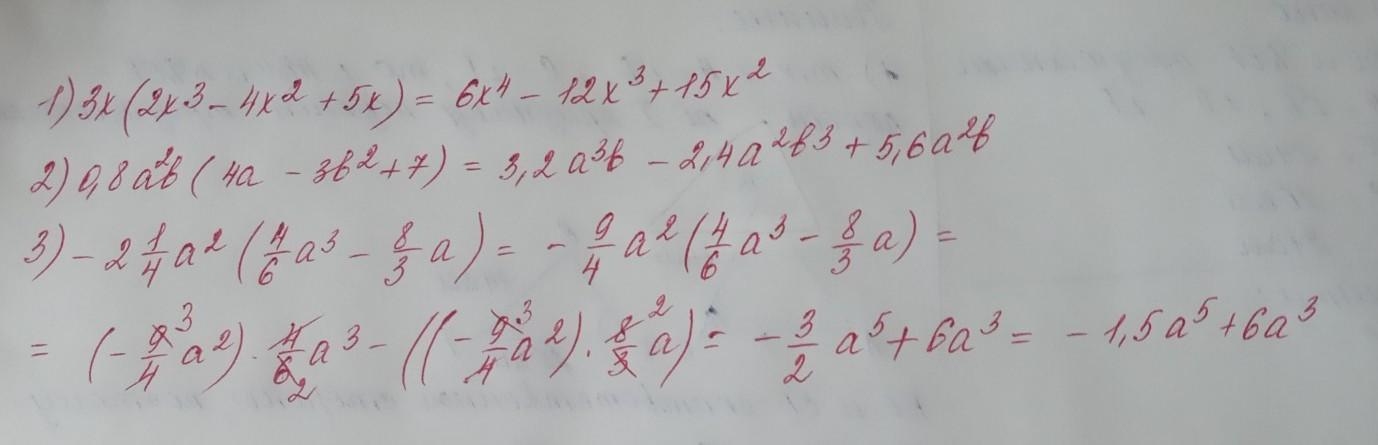 1) 3x(2x³ - 4x² + 5x) = 6x⁴ - 12x³ + 15x²
2) 0,8a²b(4a - 3b² + 7) = 3,2a³b - 2,4a²b³ + 5,6a²b
3) - 2 1/4 a² (4/6 a³ - 8/3 a) = - 9/4 a² (4/6 a³ - 8/3 a) =
= (- 9̸³/4̸ a²) · 4̸/6̸₂ a³ - ((- 9̸³/4̸ a²) · 8̸²/3̸ a) = - 3/2 a⁵ + 6a³ = - 1,5a⁵ + 6a³